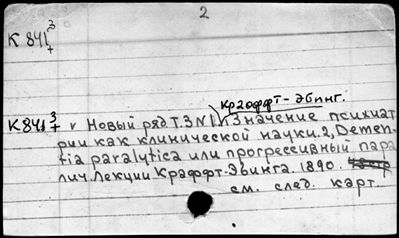 2
К 841 3/+
Краффт-Эбинг.
К 841 3/+ v Новый ряд. Т.3 N1. Значение психиат
рии как клинической науки. 2, Demen-
tia paralytica или прогрессивный пара
лич. Лекции Краффт-Эбинга. 1890.
см. след. карт.